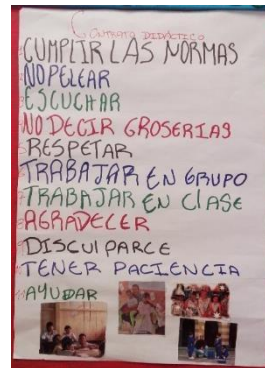 CONTRATO DIDACTICO
CUMPLIR LAS NORMAS
NO PELEAR
ESCUCHAR
NO DECIR GROSERIAS
RESPETAR
TRABAJAR EN GRUPO
TRABAJAR EN CLASE
AGRADECER
DISCULPARCE
TENER PACIENCIA
AYUDAR